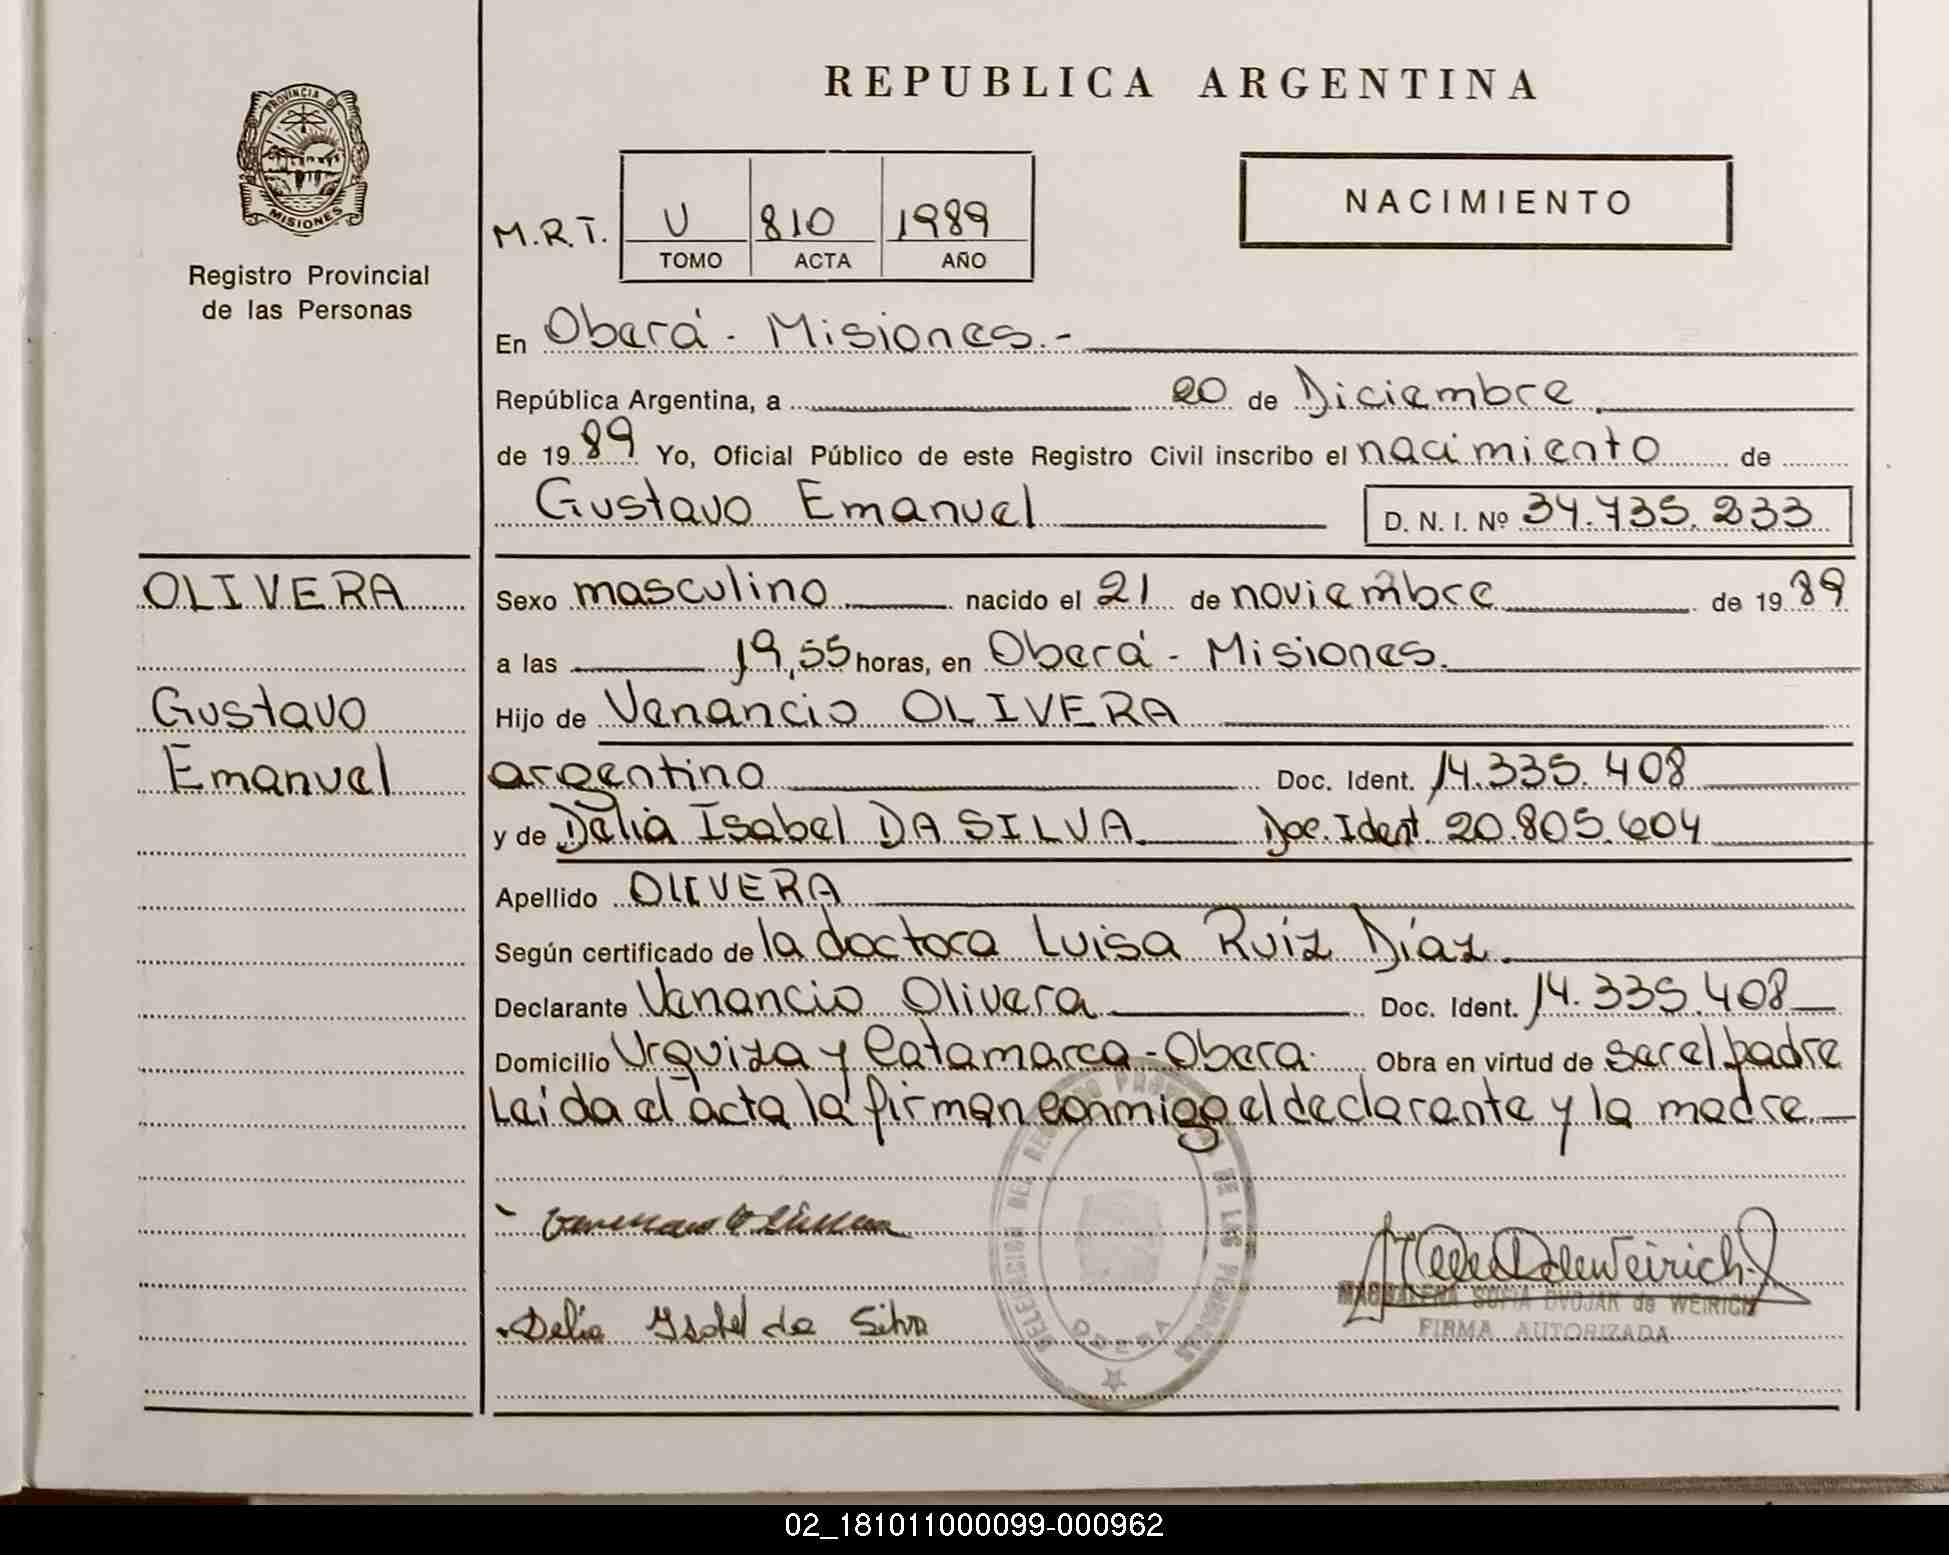 PROVINCIA DE
MISIONES
Registro Provincial
de las Personas
REPUBLICA ARGENTINA
NACIMIENTO
M.R.T. U 810 1989
TOMO ACTA AÑO
En Oberá - Misiones.-
República Argentina, a 20 de Diciembre
de 1989 Yo, Oficial Público de este Registro Civil inscribo el nacimiento de
Gustavo Emanuel D. N. I. Nº 34.735.233
OLIVERA
Gustavo
Emanuel
Sexo masculino nacido el 21 de noviembre de 1989
a las 19,55 horas, en Oberá - Misiones.
Hijo de Venancio OLIVERA
argentino Doc. Ident. 14.335.408
y de Delia Isabel DA SILVA Doc. Ident. 20.805.604
Apellido OLIVERA
Según certificado de la doctora Luisa Ruiz Díaz.
Declarante Venancio Olivera Doc. Ident. 14.335.408
Domicilio Urquiza y Catamarca - Obera. Obra en virtud de ser el padre
Leida el acta la firman conmigo el declarante y la madre.
DELEGACION DEL REGISTRO PROVINCIAL DE LAS PERSONAS
OBERA
Delia Isabel da Silva
MAGDALENA SOFIA DVOJAK de WEIRICH
FIRMA AUTORIZADA
02_181011000099-000962